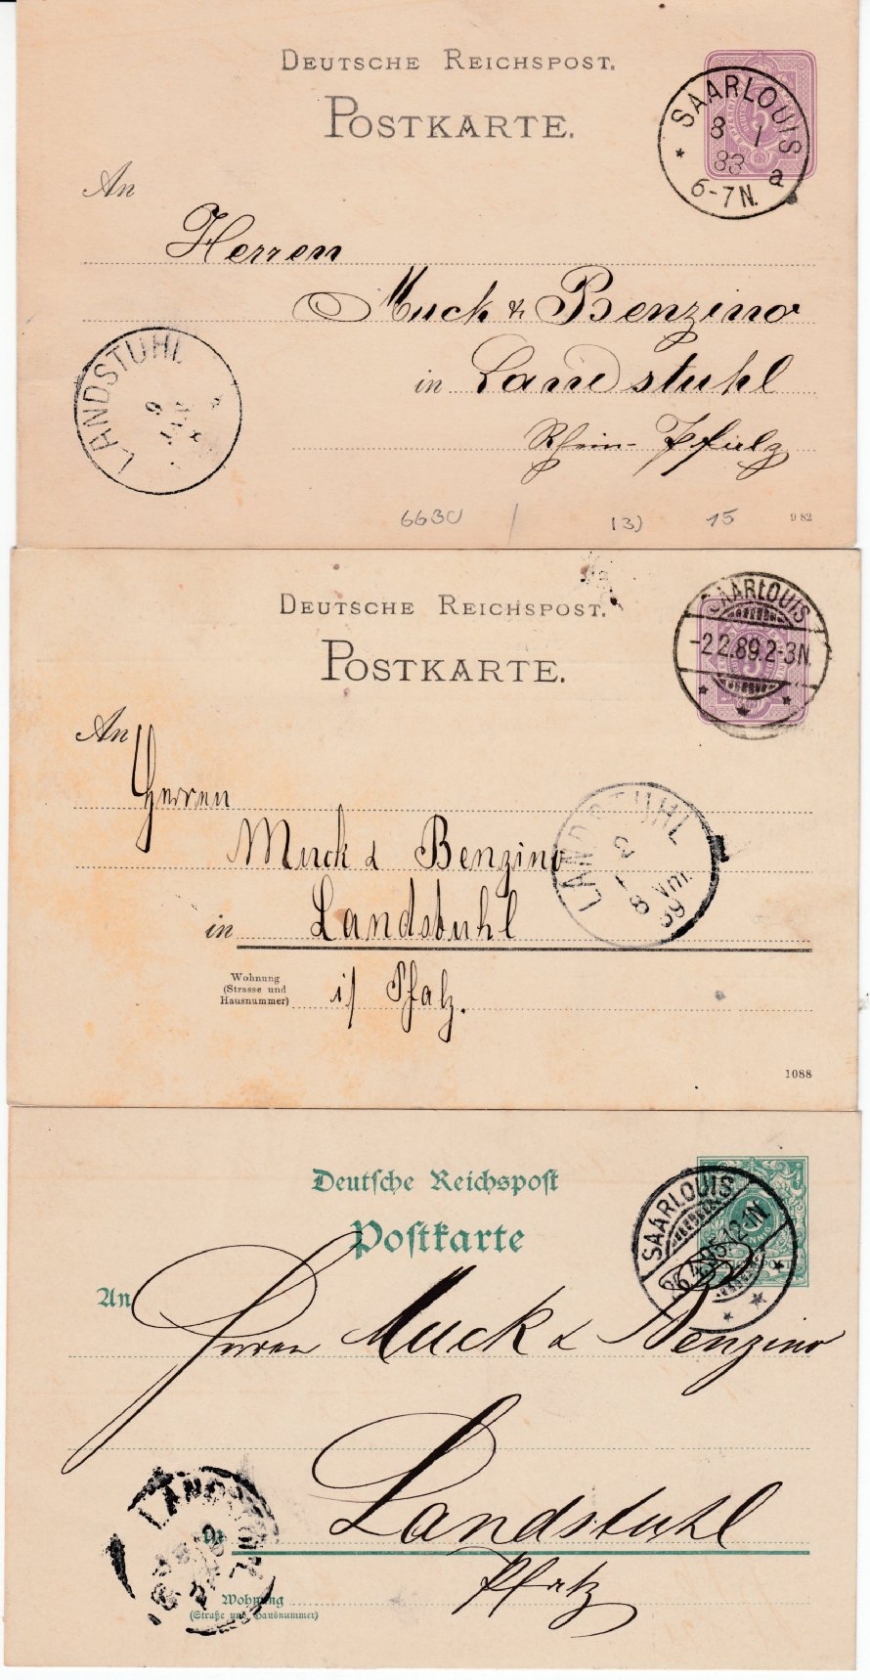 DEUTSCHE REICHSPOST.
POSTKARTE.
SAARLOUIS
8 1
83 a
6-7N.
An
Herren
Muck & Benzino
in Landstuhl
Rhein-Pfalz
LANDSTUHL
9
6630 / 13) 15 9 82
DEUTSCHE REICHSPOST.
POSTKARTE.
SAARLOUIS
-2 2.89.2-3N.
An
Herren
Muck & Benzino
in Landstuhl
LANDSTUHL
2
8 Vm.
89
Wohnung
(Strasse und
Hausnummer)
i/ Pfalz.
1088
Deutsche Reichspost
Postkarte
SAARLOUIS
26.4.95.12-1N
An
Herren Muck & Benzino
Landstuhl
Pfalz
LANDSTUHL
Wohnung
(Straße und Hausnummer)